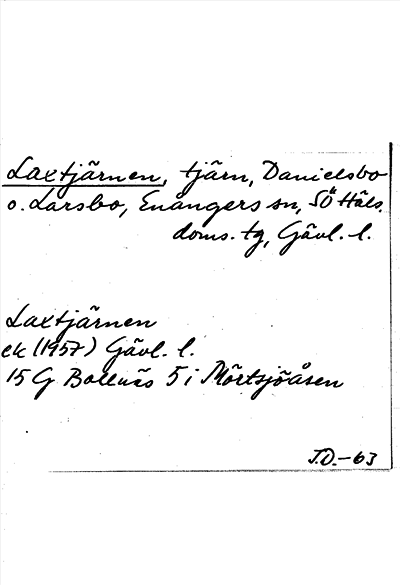 Laxtjärnen, tjärn, Danielsbo
o. Larsbo, Enångers sn, SÖ Häls.
doms. tg, Gävl. l.
Laxtjärnen
ek (1957) Gävl. l.
15 G Bollnäs 5 i Mörtsjöåsen
J.D.-63